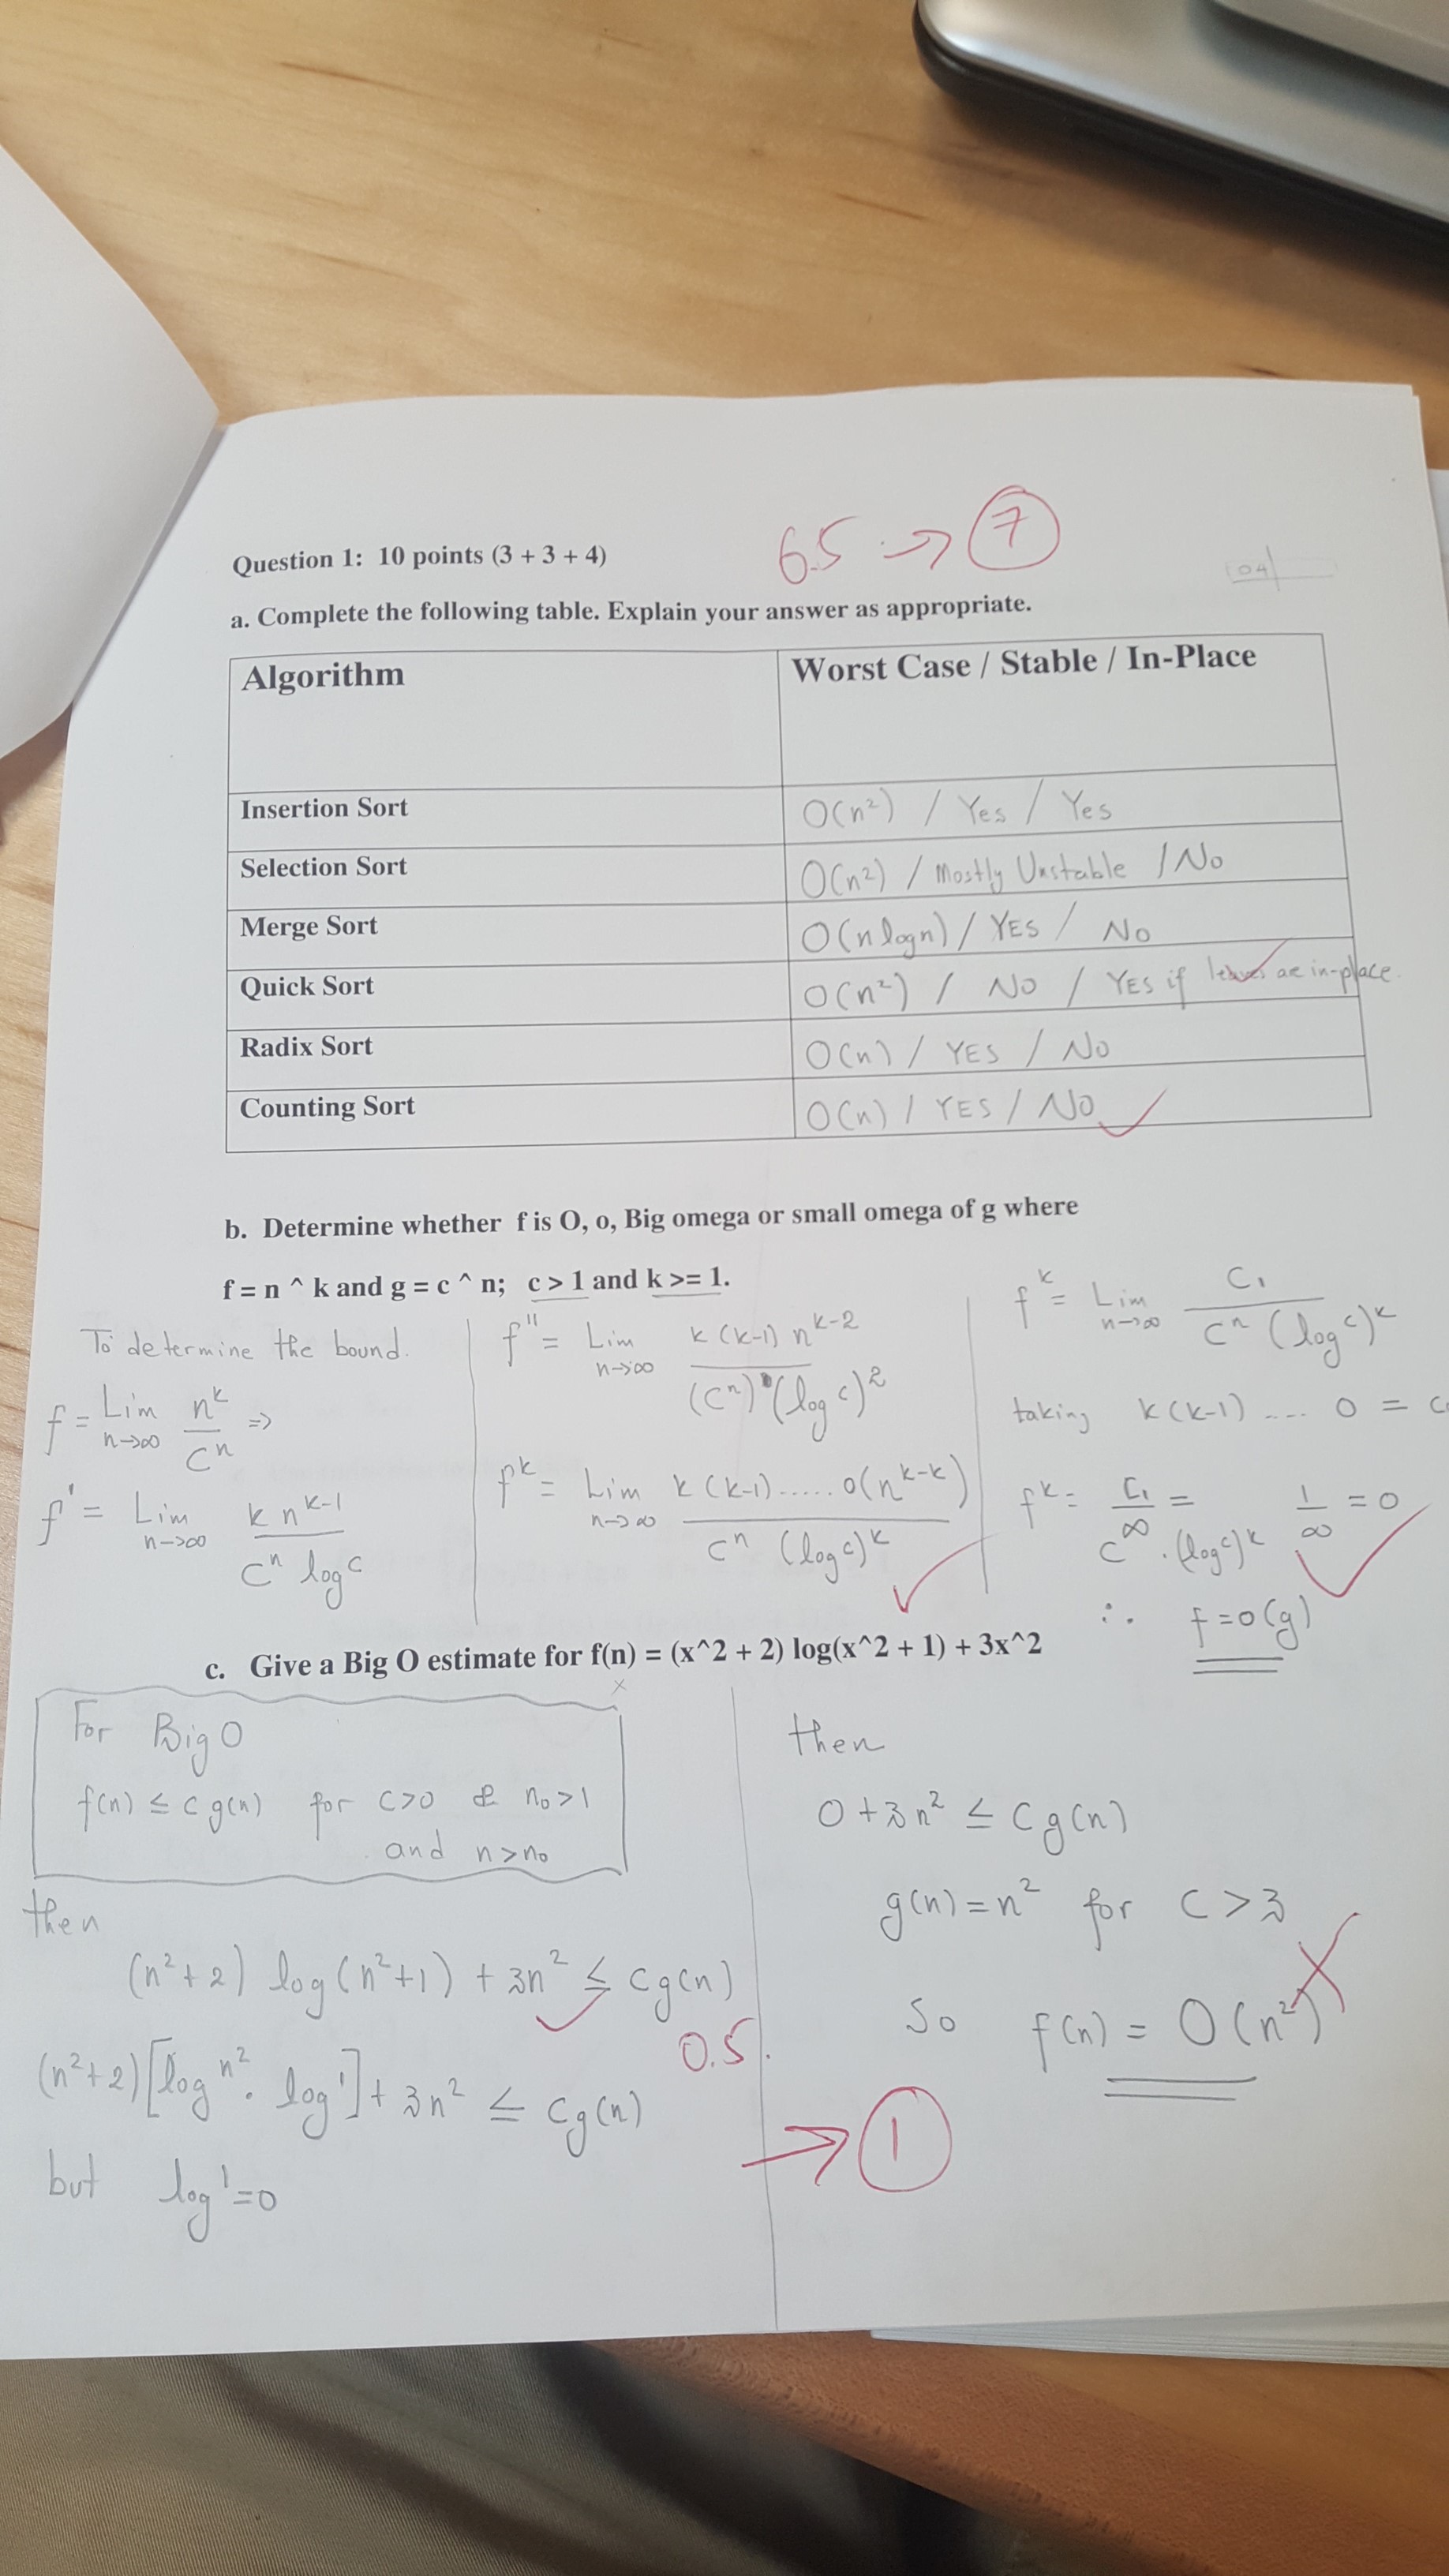 6.5 → 7
Question 1: 10 points (3 + 3 + 4)
a. Complete the following table. Explain your answer as appropriate.
Algorithm
Worst Case / Stable / In-Place
Insertion Sort
O(n²) / Yes / Yes
Selection Sort
O(n²) / Mostly Unstable / No
Merge Sort
O(n logn) / YES / No
Quick Sort
O(n²) / NO / YES if leaves are in-place.
Radix Sort
O(n) / YES / No
Counting Sort
O(n) / YES / No ✓
b. Determine whether f is O, o, Big omega or small omega of g where
f = n ^ k and g = c ^ n; c > 1 and k >= 1.
To determine the bound.
f = Lim n→∞ n^k / c^n ⇒
f' = Lim n→∞ k n^(k-1) / c^n log c
f'' = Lim n→∞ k (k-1) n^(k-2) / (c^n) (log c)^2
f^k = Lim n→∞ k (k-1) ...... 0(n^(k-k)) / c^n (log c)^k
f^k = Lim n→∞ C₁ / c^n (log c)^k
taking k(k-1) .... 0 =
f^k = C₁ / c^∞ . (log c)^k = 1/∞ = 0
∴ f = o(g)
c. Give a Big O estimate for f(n) = (x^2 + 2) log(x^2 + 1) + 3x^2
For Big O
f(n) ≤ c g(n) for c>0 & n₀>1
and n>n₀
then
(n²+2) log(n²+1) + 3n² ≤ cg(n)
0.5
(n²+2)[log n² . log 1] + 3n² ≤ cg(n)
but log 1 = 0
then
0 + 3n² ≤ Cg(n)
g(n) = n² for C > 3
So f(n) = O(n²)
→ 1